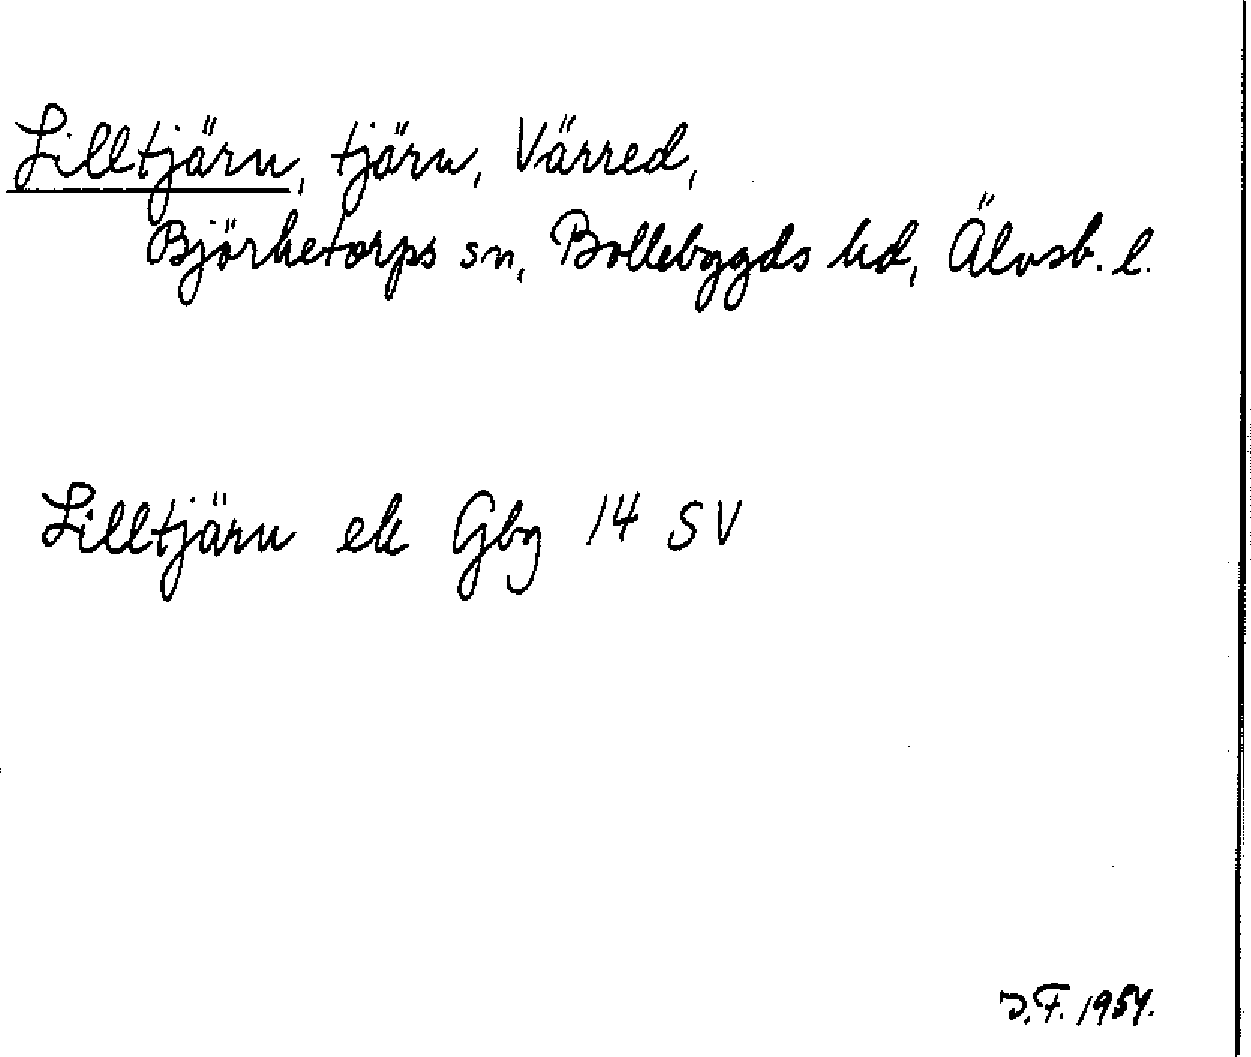 Lilltjärn, tjärn, Värred,
Björketorps sn, Bollebygds hd, Älvsb. l.
Lilltjärn ek Gbg 14 SV
J.F. 1954.